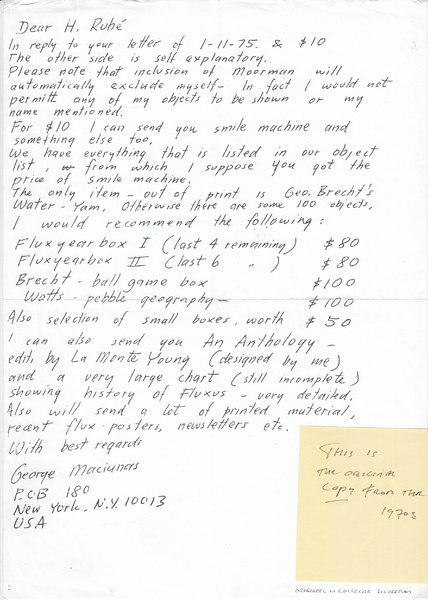 Dear H. Ruhé
In reply to your letter of 1-11-75. & $10
The other side is self explanatory.
Please note that inclusion of Moorman will
automatically exclude myself- In fact I would not
permitt any of my objects to be shown or my
name mentioned.
For $10 I can send you smile machine and
something else too.
We have everything that is listed in our object
list, from which I suppose you got the
price of smile machine.
The only item - out of print is Geo. Brecht's
Water - Yam. Otherwise there are some 100 objects,
I would recommend the following:
Fluxyearbox I (last 4 remaining) $80
Fluxyearbox II (last 6 " ) $80
Brecht - ball game box $100
Watts - pebble geography - $100
Also selection of small boxes, worth $50
I can also send you An Anthology -
edit. by La Monte Young (designed by me)
and a very large chart (still incomplete)
showing history of Fluxus - very detailed.
Also will send a lot of printed material,
recent flux-posters, newsletters etc.
With best regards
George Maciunas
P.O.B 180
New York, N.Y. 10013
USA
This is
the original
copy from the
1970s